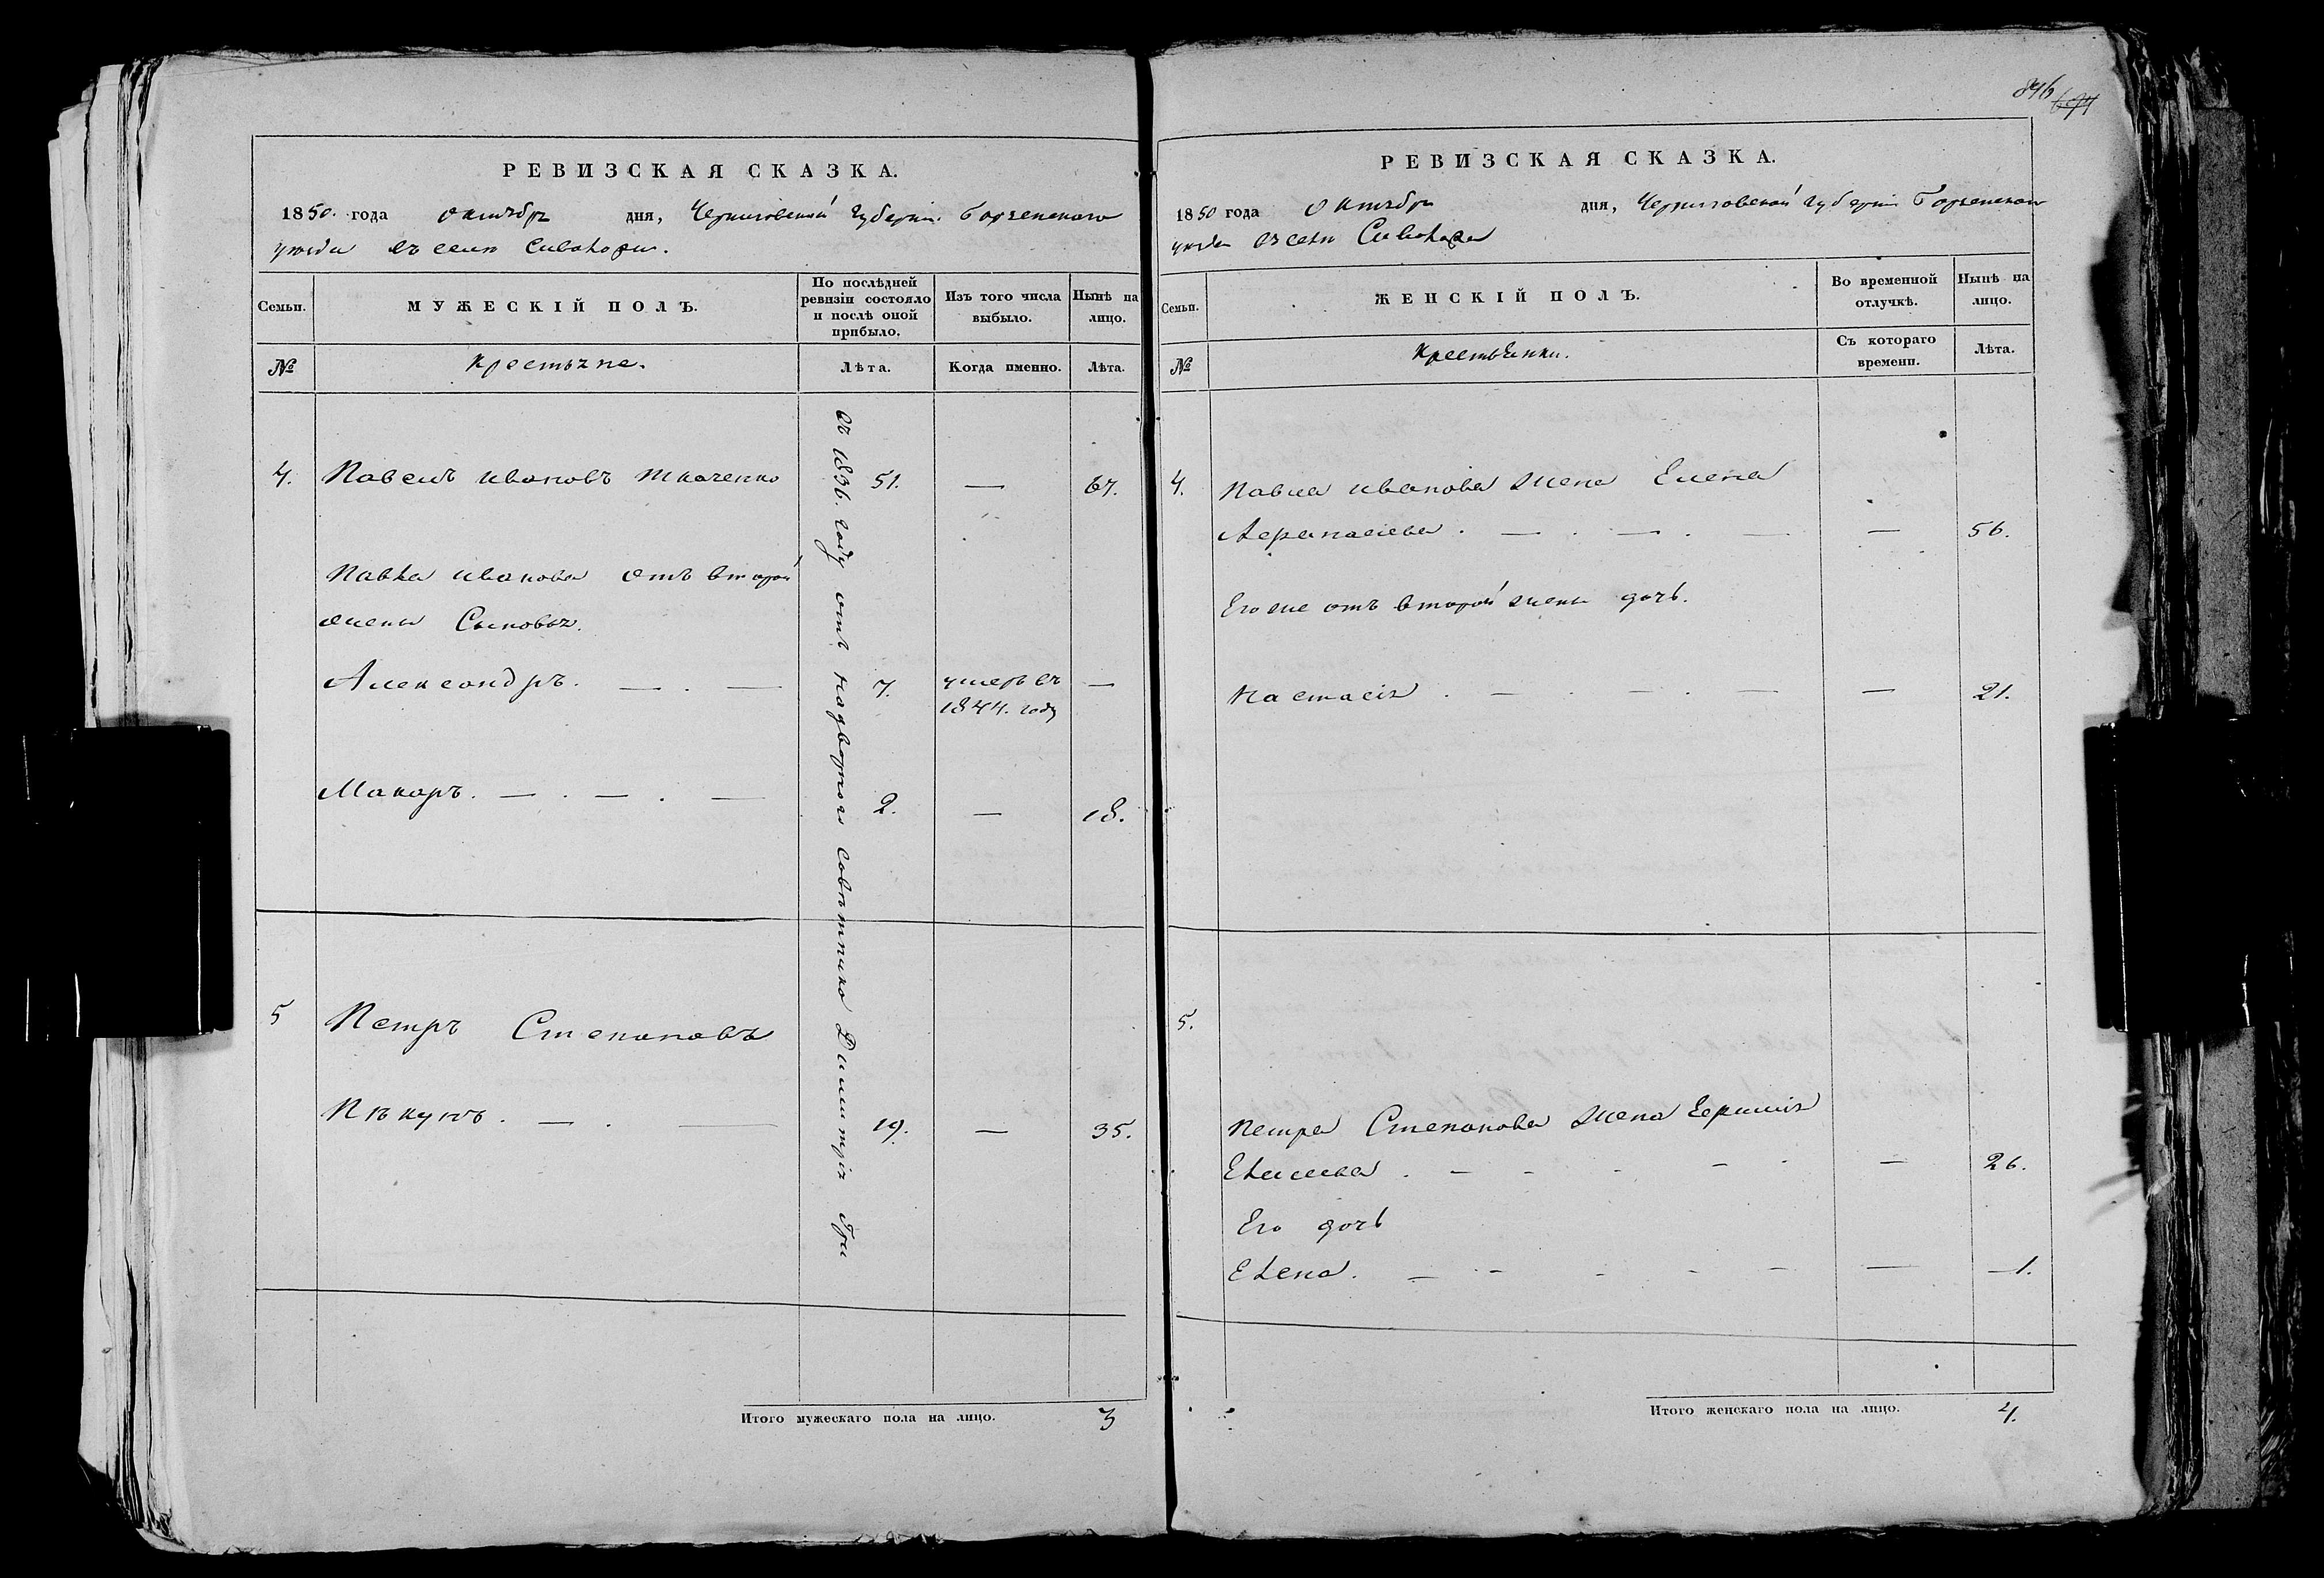 РЕВИЗСКАЯ СКАЗКА.
1850. года октября дня, Черниговской Губернiи Борзенского
уезда въ селе Сиволожи.
Семьи.
МУЖЕСКІЙ ПОЛЪ.
По послѣдней
ревизіи состояло
и послѣ оной
прибыло.
Изъ того числа
выбыло.
Нынѣ на
лицо.
№
Крестьяне.
Лѣта.
Когда именно.
Лѣта.
въ 1836. году отъ надворного советника Димитрія Гри
4. Павелъ Ивановъ Ткаченко 51. — 67.
Павла Иванова отъ второй
жены Сыновья.
Александръ. — . — 7. умеръ въ —
1844. году
Макаръ. — . — . — 2. — 18.
5 Петръ Степановъ
Пѣкуръ. — . — 19. — 35.
Итого мужескаго пола на лицо. 3
846
694
РЕВИЗСКАЯ СКАЗКА.
1850 года Октября дня, Черниговской губерніи Борзенского
уезда въ селе Сиволожи
Семьи.
ЖЕНСКІЙ ПОЛЪ.
Во временной
отлучкѣ.
Нынѣ на
лицо.
№
Крестьянки.
Съ котораго
времени.
Лѣта.
4. Павла Иванова жена Елена
Афанасиева . — . — . — — 56.
Его же отъ второй жены дочь.
Настасія . — . — . — — 21.
5.
Петра Степанова жена Ефимія
Елисеева . — - - — - — 26.
Его дочь
Елена. — - - - - — 1.
Итого женскаго пола на лицо. 4.